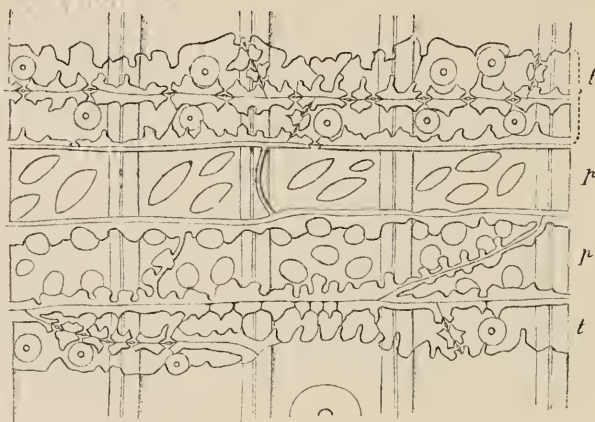 t
p
p
t